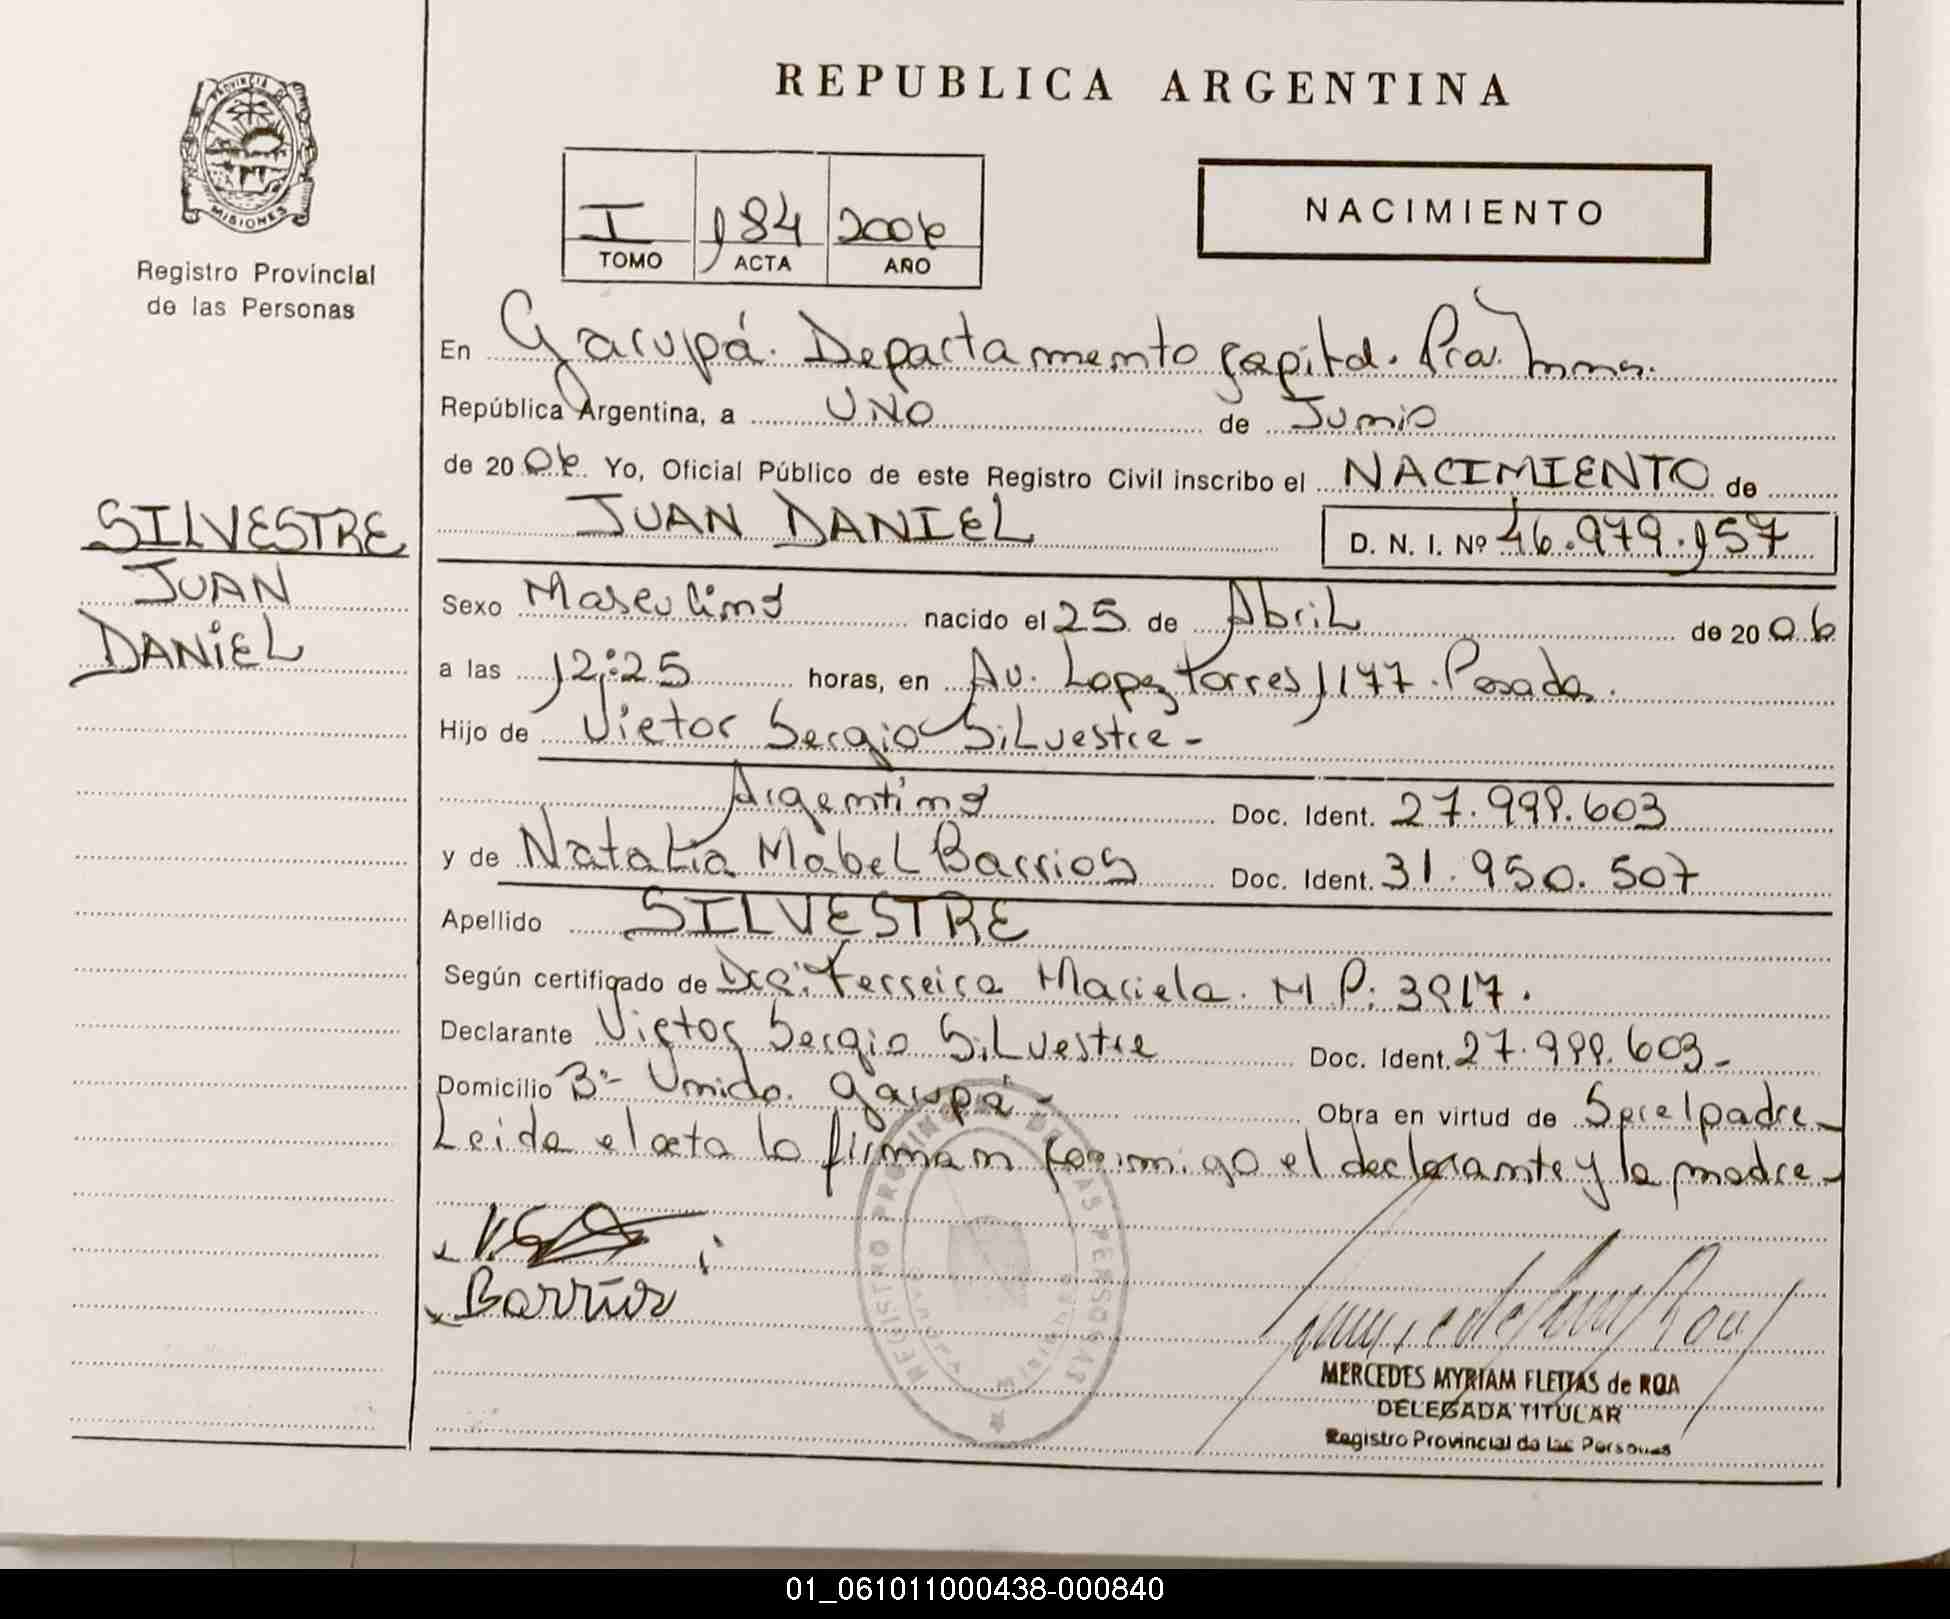 PROVINCIA DE
MISIONES
Registro Provincial
de las Personas
SILVESTRE
JUAN
DANIEL
REPUBLICA ARGENTINA
I 184 2006
TOMO ACTA AÑO
NACIMIENTO
En Garupá. Departamento Capital. Pcia. Mnes.
República Argentina, a UNO de Junio
de 2006 Yo, Oficial Público de este Registro Civil inscribo el NACIMIENTO de
JUAN DANIEL D. N. I. Nº 46.979.157
Sexo Masculino nacido el 25 de Abril de 2006
a las 12:25 horas, en Av. Lopez Torres 1177. Posadas.
Hijo de Victor Sergio Silvestre -
Argentino Doc. Ident. 27.999.603
y de Natalia Mabel Barrios Doc. Ident. 31.950.507
Apellido SILVESTRE
Según certificado de Dra: Ferreira Mariela. M P: 3917.
Declarante Victor Sergio Silvestre Doc. Ident. 27.999.603-
Domicilio Bº- Unido. Garupá - Obra en virtud de Ser el padre-
Leida el acta la firman conmigo el declarante y la madre-
Barrios
REGISTRO PROVINCIAL DE LAS PERSONAS
GARUPA
MISIONES
MERCEDES MYRIAM FLEITAS de ROA
DELEGADA TITULAR
Registro Provincial de las Personas
01_061011000438-000840